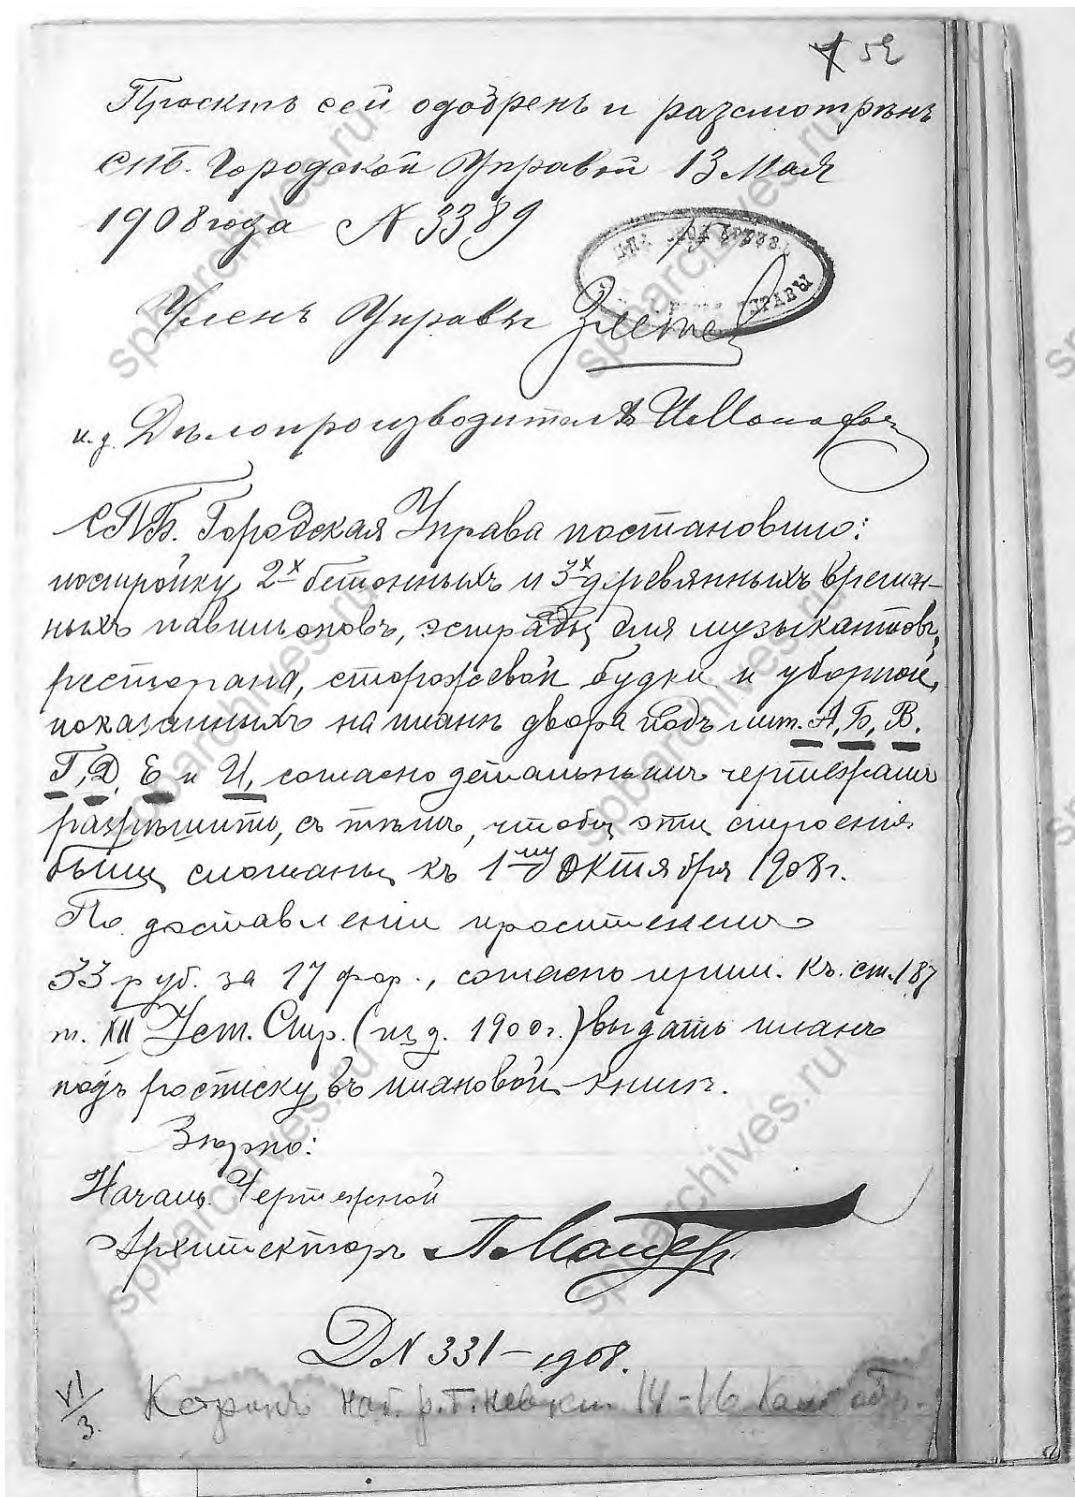 52
Проектъ сей одобренъ и разсмотрѣнъ
СПБ. Городской Управой 13 Мая
1908 года N 3389
УПРАВЫ
Членъ Управы
и.д. Дѣлопроизводителя
СПБ. Городская Управа постановила:
постройку 2х бетонныхъ и 3х деревянныхъ времен-
ныхъ павильоновъ, эстрады для музыкантовъ,
ресторана, сторожевой будки и уборной,
показанныхъ на планѣ двора подъ лит. А, Б, В.
Г, Д, Е и И, согласно детальнымъ чертежамъ
разрѣшить, съ тѣмъ, чтобы эти строенія
были сломаны къ 1му Октября 1908 г.
По доставленіи просителемъ
33 руб. за 17 фор., согласно прим. къ ст. 187
т. XII Уст. Стр. (изд. 1900 г.) выдать планъ
подъ росписку въ плановой книгѣ.
Вѣрно:
Начальн. Чертежной
Архитекторъ
Д N 331 – 1908.
VI/3.
наб. р. Б. Невки 14-16
spbarchives.ru
spbarchives.ru
spbarchives.ru
spbarchives.ru
spbarchives.ru
spbarchives.ru